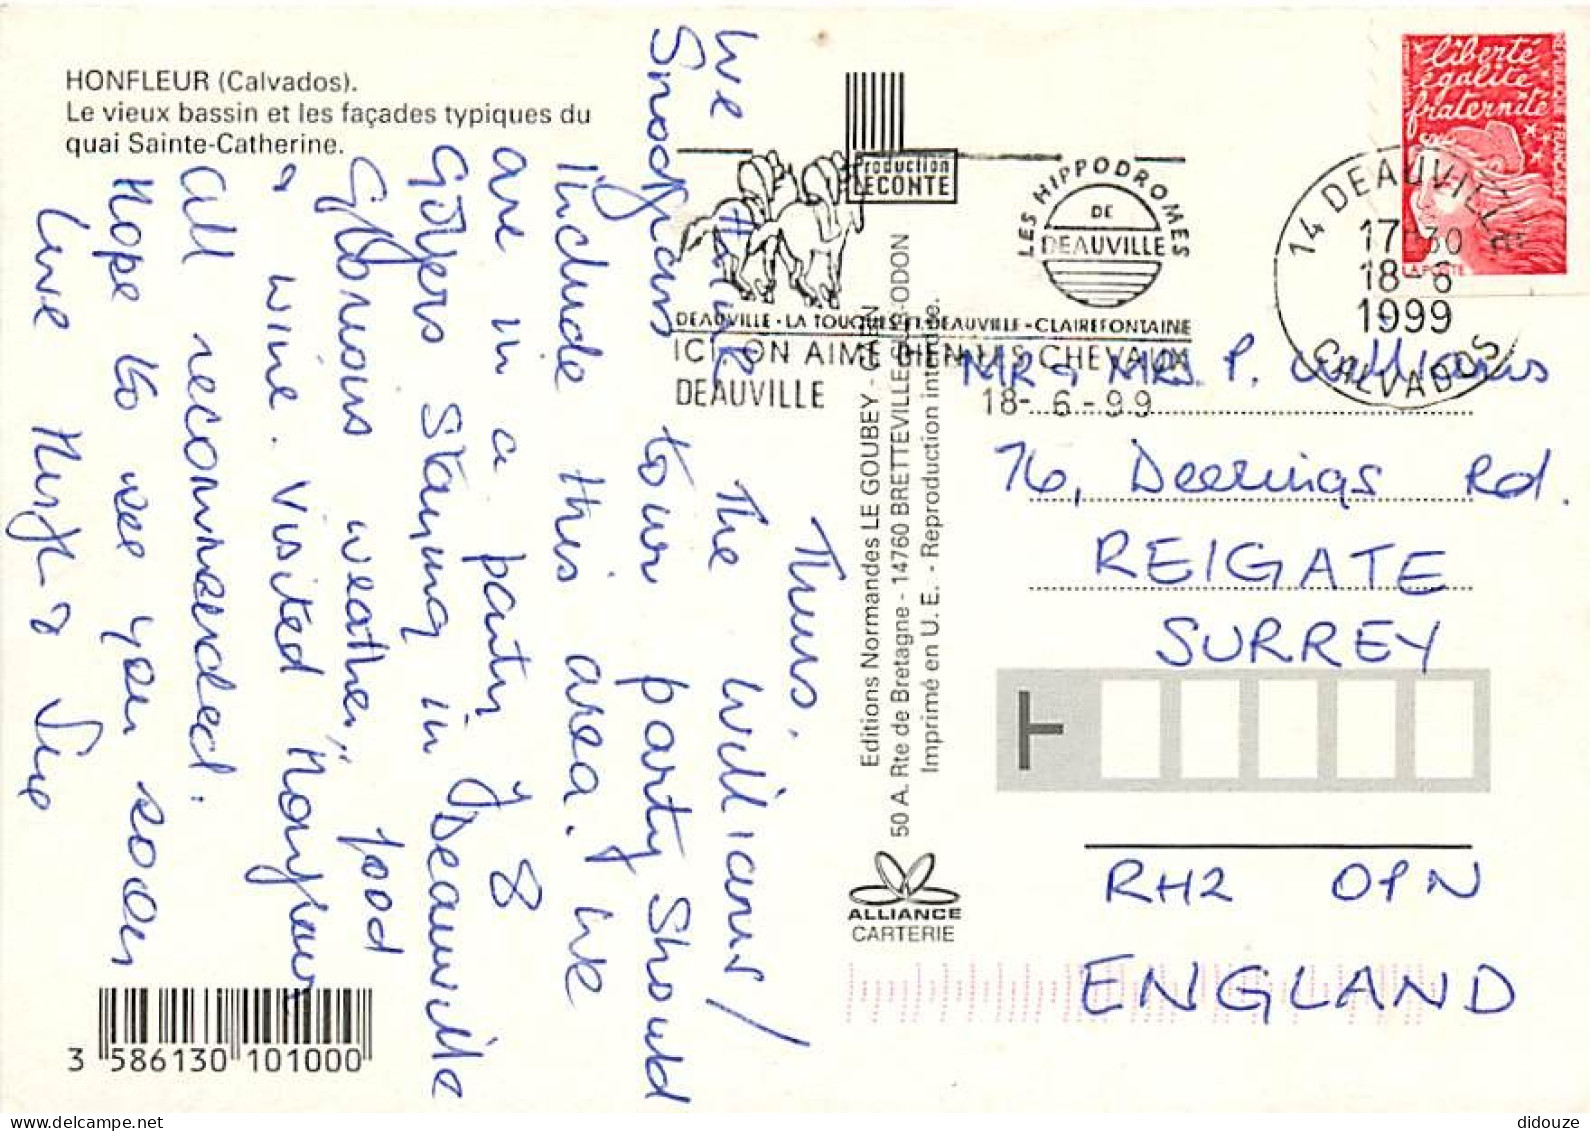 HONFLEUR (Calvados).
Le vieux bassin et les façades typiques du
quai Sainte-Catherine.
Thurs.
We think The Williams/
Snodgrass tour party should
include this area. We
are in a party of 8
Golfers staying in Deauville
Glorious weather, food
& wine. Visited Honfleur
all recommended.
Hope to see you soon
Love Hugh & Sue
Production
LECONTE
LES HIPPODROMES
DE
DEAUVILLE
DEAUVILLE-LA TOUQUES ET DEAUVILLE-CLAIREFONTAINE
ICI, ON AIME BIEN LES CHEVAUX
DEAUVILLE
18-6-99
liberté
égalité
fraternité
REPUBLIQUE FRANÇAISE
LA POSTE
14 DEAUVILLE
17-30
18-6
1999
CALVADOS
MR & MRS. P. Williams
76, Deerings Rd.
REIGATE
SURREY
RH2 OPN
ENGLAND
Editions Normandes LE GOUBEY - CAEN
50 A. Rte de Bretagne - 14760 BRETTEVILLE-SUR-ODON
Imprimé en U. E. - Reproduction interdite.
ALLIANCE
CARTERIE
3 586130 101000
didouze